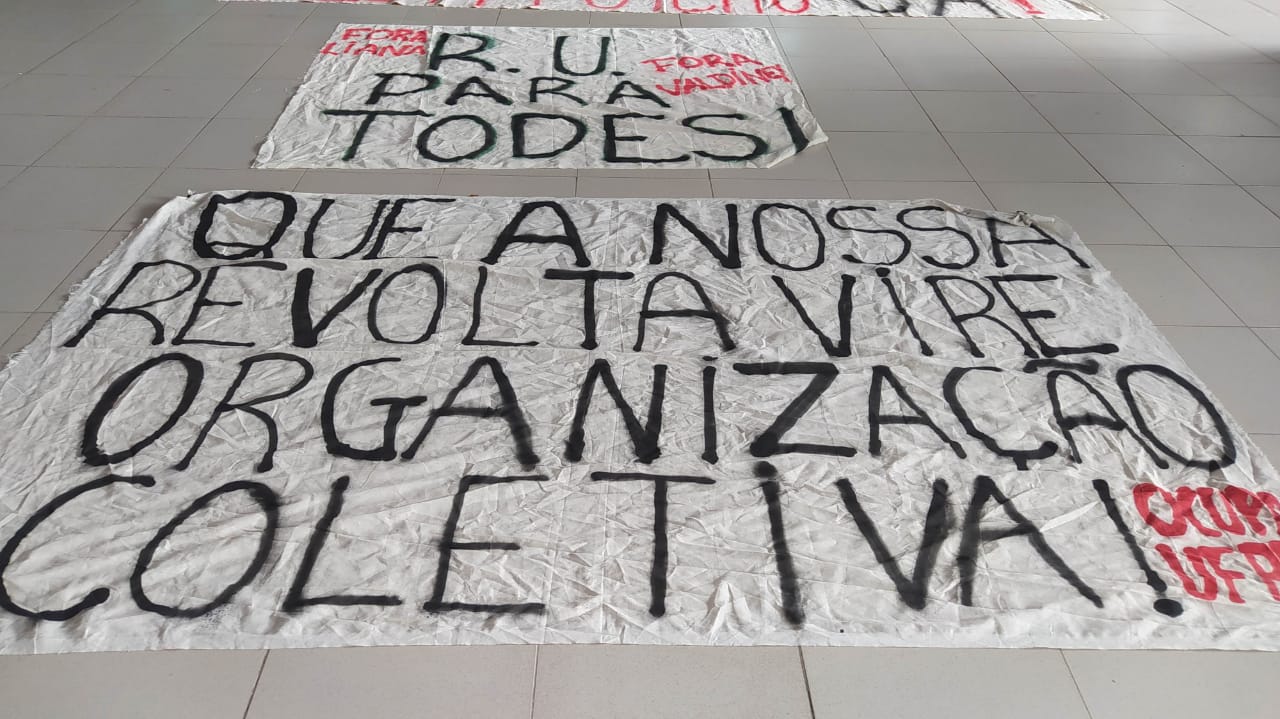 JÁ!
FORA
LIANA
R. U.
PARA
TODES!
FORA
VALDINEY
QUE A NOSSA
REVOLTA VIRE
ORGANIZAÇÃO
COLETIVA!
OCUP
UFP